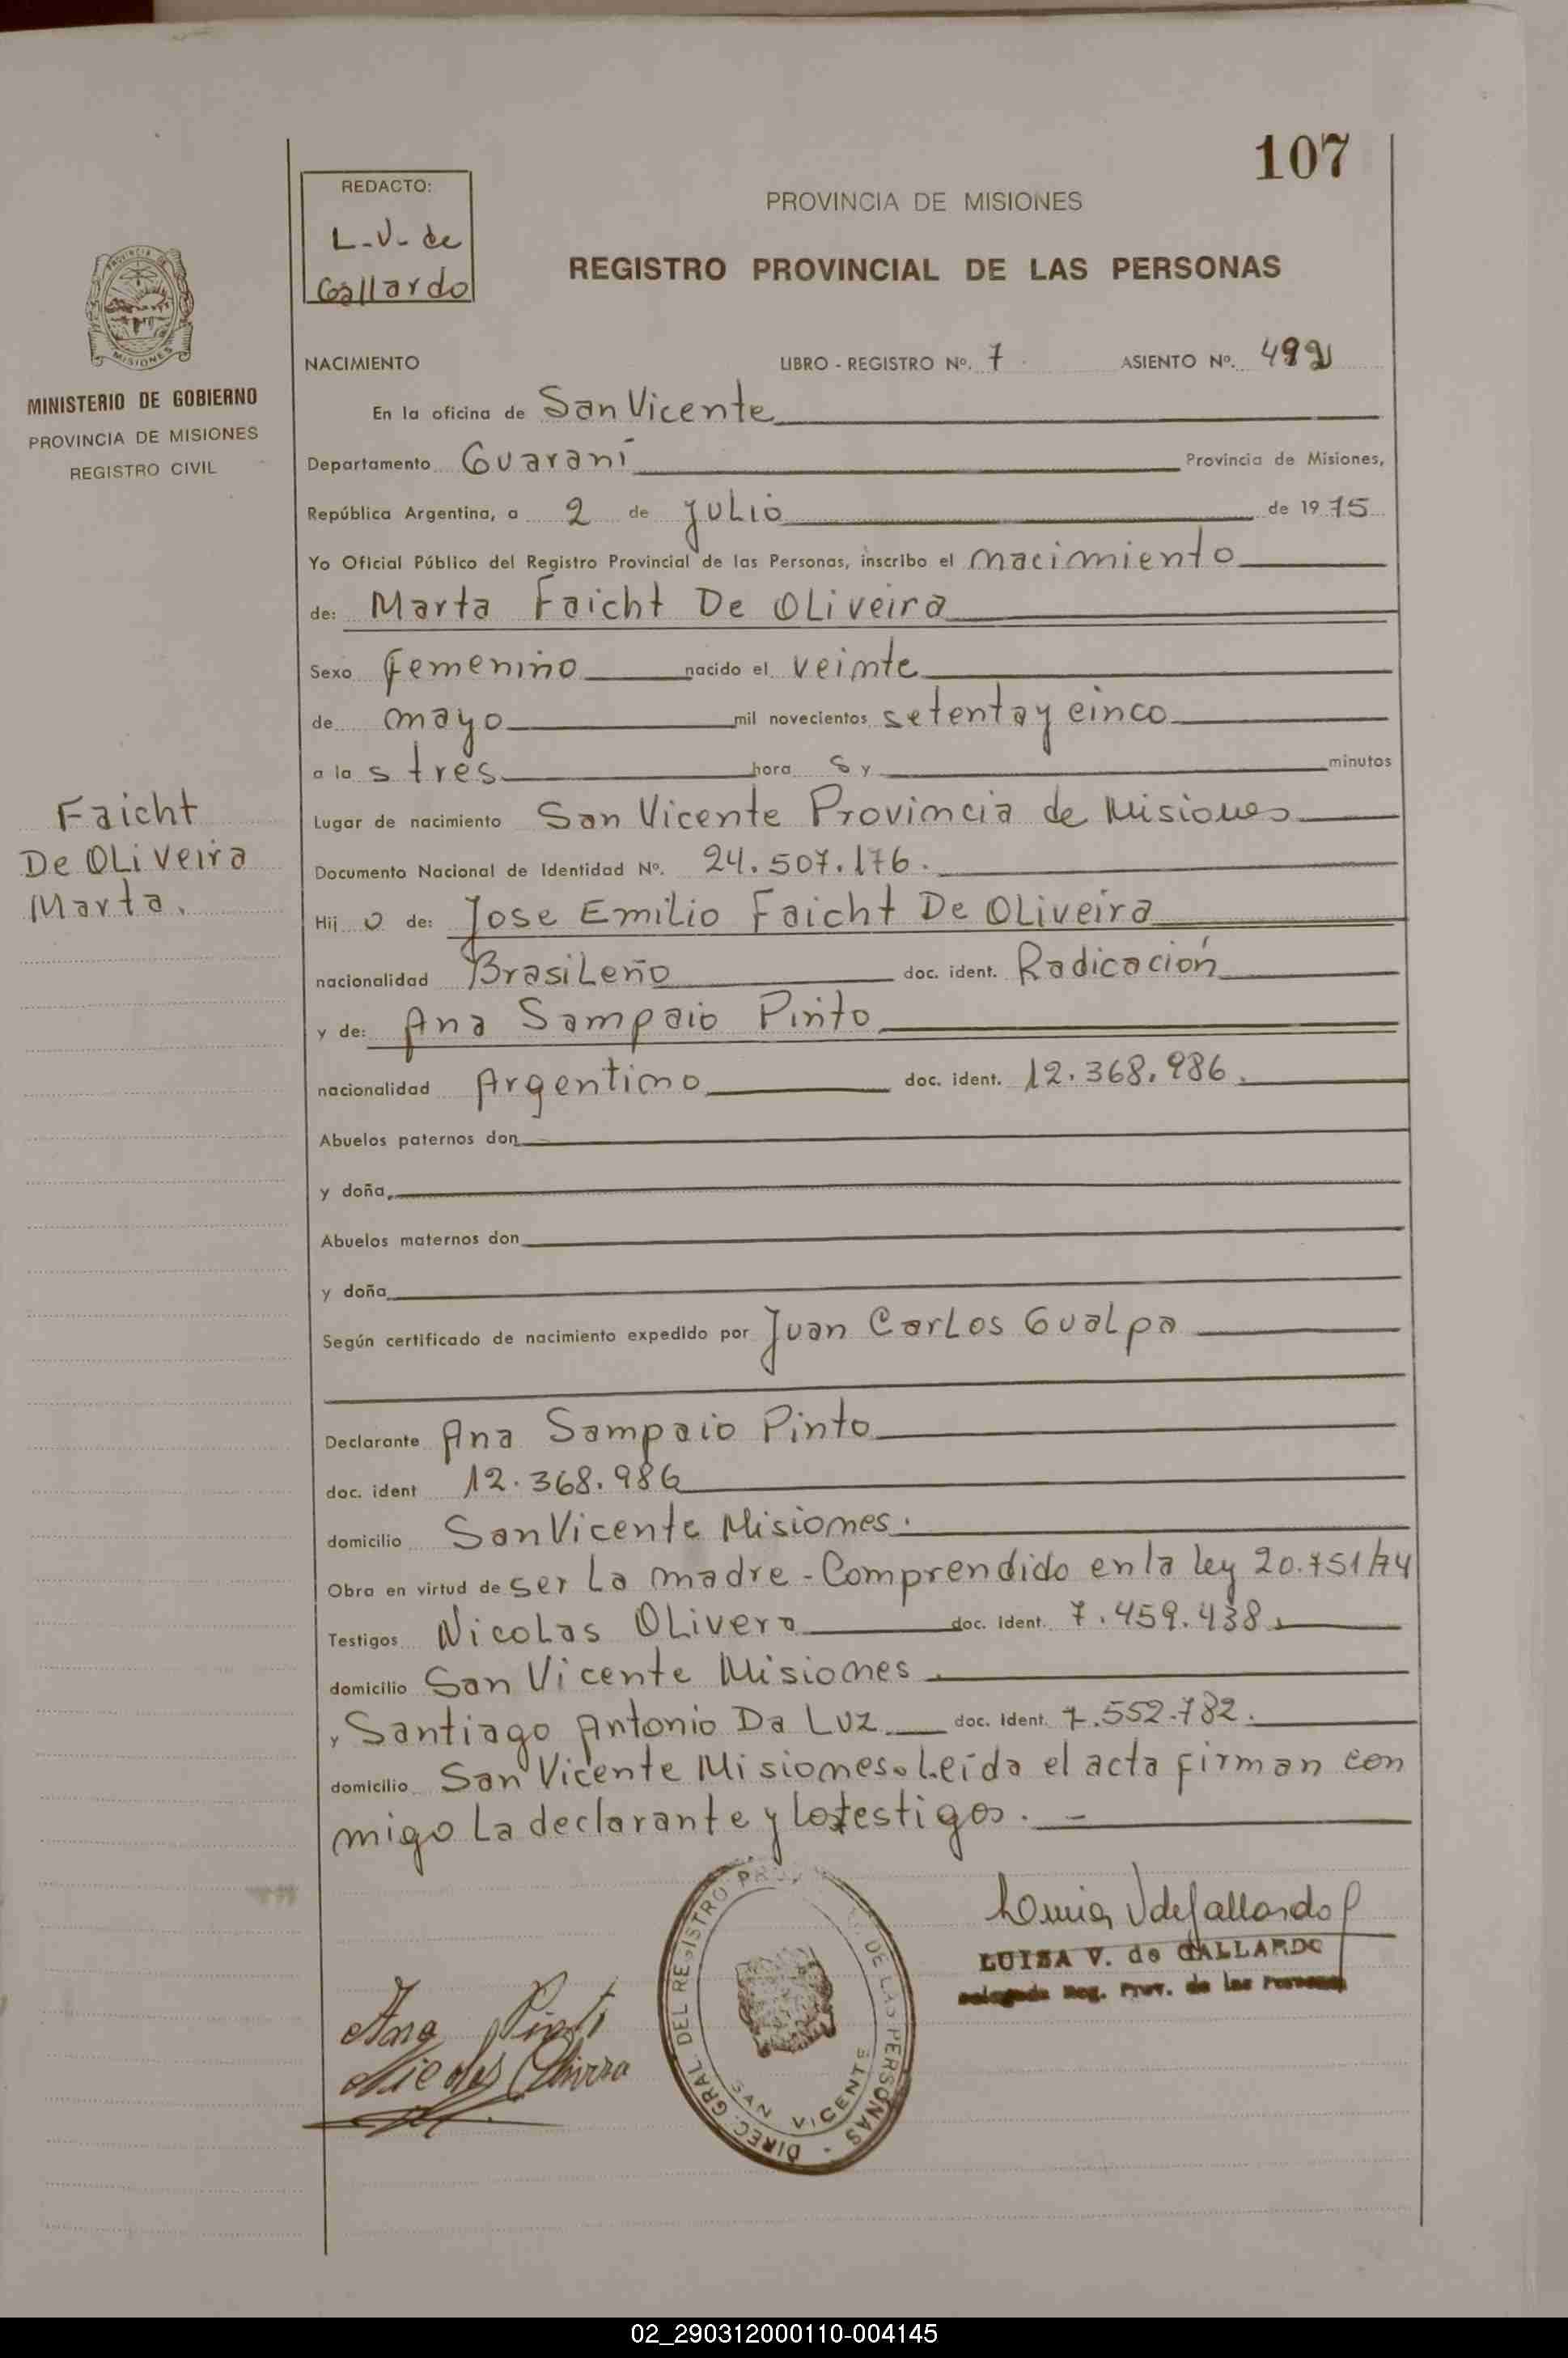 107
REDACTO:
L-V- de
Gallardo
PROVINCIA DE MISIONES
REGISTRO PROVINCIAL DE LAS PERSONAS
PROVINCIA DE
MISIONES
MINISTERIO DE GOBIERNO
PROVINCIA DE MISIONES
REGISTRO CIVIL
NACIMIENTO LIBRO - REGISTRO Nº. 7 ASIENTO Nº.
En la oficina de San Vicente
Departamento Guaraní Provincia de Misiones,
República Argentina, a 2 de julio de 1975
Yo Oficial Público del Registro Provincial de las Personas, inscribo el nacimiento
de: Marta Faicht De OLiveira
Sexo femenino nacido el veinte
de mayo mil novecientos setenta y cinco
a la s tres hora s y minutos
Lugar de nacimiento San Vicente Provincia de Misiones
Documento Nacional de Identidad Nº. 24.507.176.
Hij o de: Jose Emilio Faicht De OLiveira
nacionalidad BrasiLeño doc. ident. Radicación
y de: Ana Sampaio Pinto
nacionalidad Argentino doc. ident. 12.368.986.
Abuelos paternos don
y doña
Abuelos maternos don
y doña
Según certificado de nacimiento expedido por Juan CarLos Gualpa
Declarante Ana Sampaio Pinto
doc. ident 12.368.986
domicilio San Vicente Misiones.
Obra en virtud de ser La madre - Comprendido en la ley 20.751/74
Testigos NicoLas OLivera doc. Ident. 7.459.438.
domicilio San Vicente Misiones.
y Santiago Antonio Da Luz doc. Ident. 7.552.782.
domicilio San Vicente Misiones. Leída el acta firman con
migo La declarante y los testigos. -
Faicht
De OLiveira
Marta.
DIREC. GRAL. DEL REGISTRO PROV. DE LAS PERSONAS -
SAN VICENTE
V de Gallardo
LUISA V. de GALLARDO
Delegada Reg. Prov. de las Personas
Ana Pinto
Nicolas Olivera
02_290312000110-004145